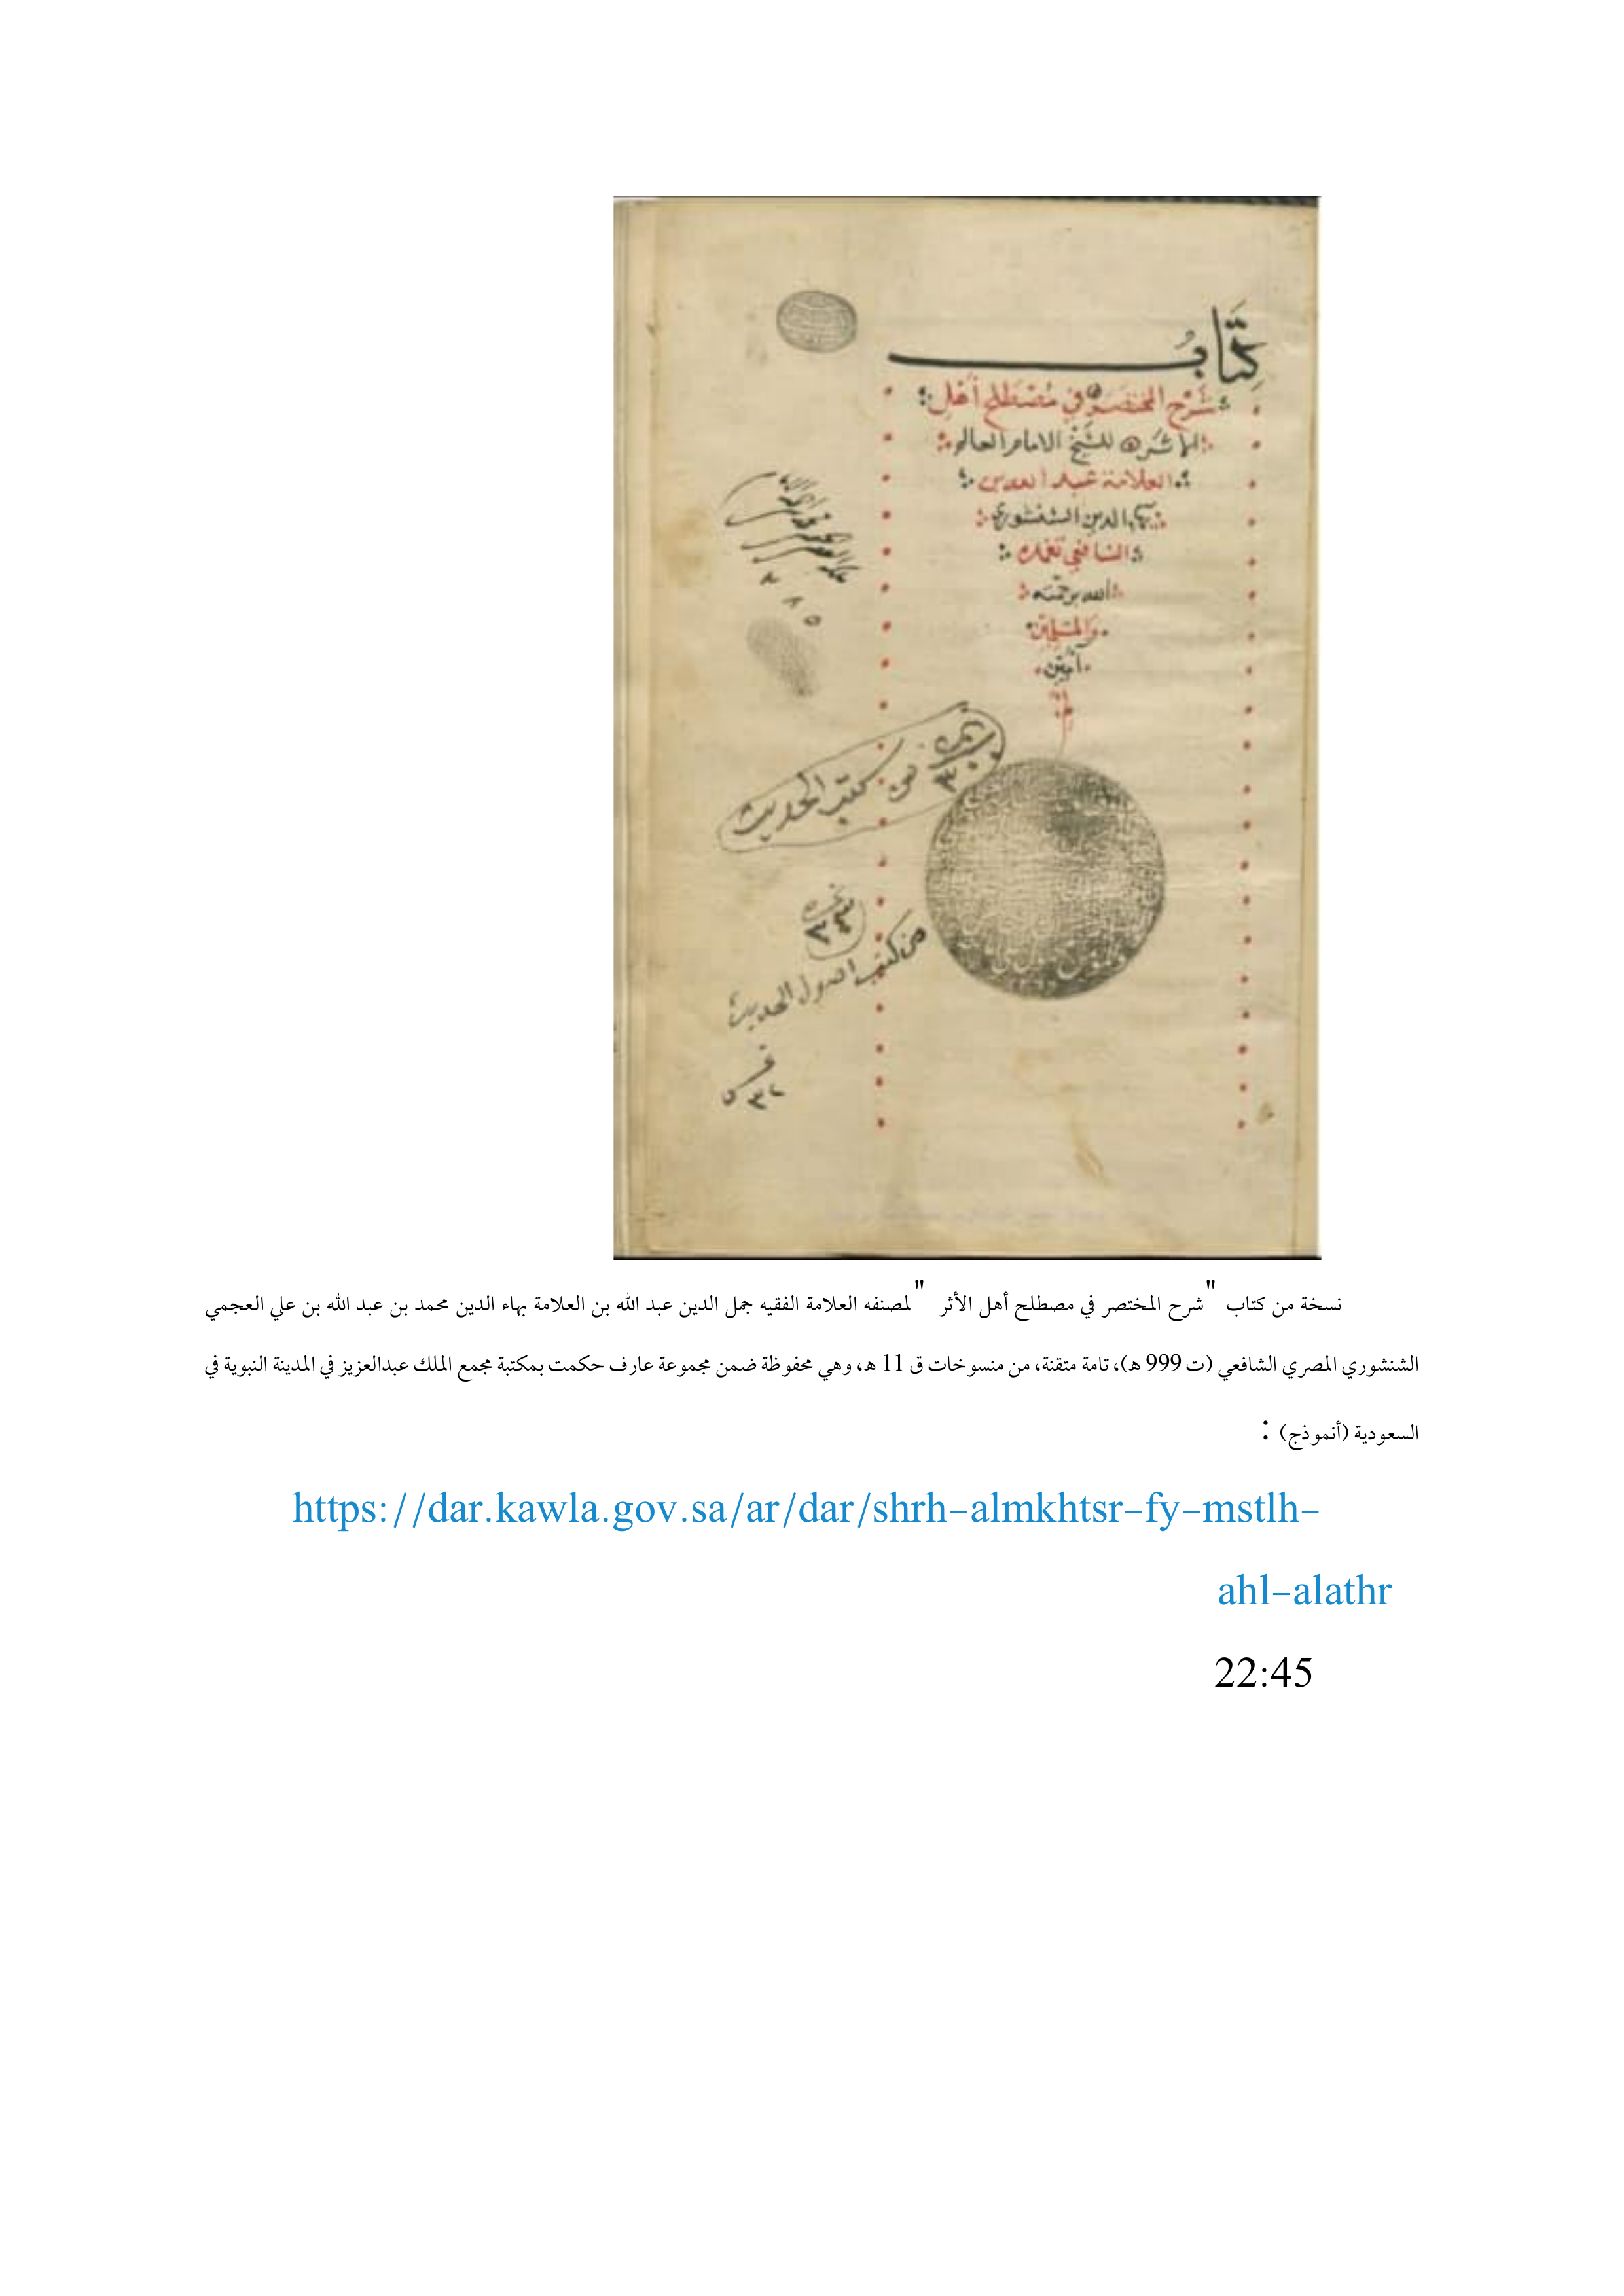 كِتَابُ
شَرْح المختصر في مُصْطَلح أَهْل
الاثر للشيخ الامام العالم
العلامة عبد الله بن
بهاء الدين الشنشوري
الشافعي تغمده
الله برحمته
والمسلمين
آمين
نمرة
٣٠
من كتب الحديث
نمرة
٣٣
من كتب اصول الحديث
نسخة من كتاب "شرح المختصر في مصطلح أهل الأثر "لمصنفه العلامة الفقيه جمل الدين عبد الله بن العلامة بهاء الدين محمد بن عبد الله بن علي العجمي
الشنشوري المصري الشافعي (ت 999 ه)، تامة متقنة، من منسوخات ق 11 ه، وهي محفوظة ضمن مجموعة عارف حكمت بمكتبة مجمع الملك عبدالعزيز في المدينة النبوية في
السعودية (أنموذج) :
https://dar.kawla.gov.sa/ar/dar/shrh-almkhtsr-fy-mstlh-
ahl-alathr
22:45